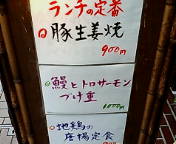 ランチの定番
豚生姜焼
900円
鰻とトロサーモン
づけ重
1000円
地鶏の
唐揚定食
900